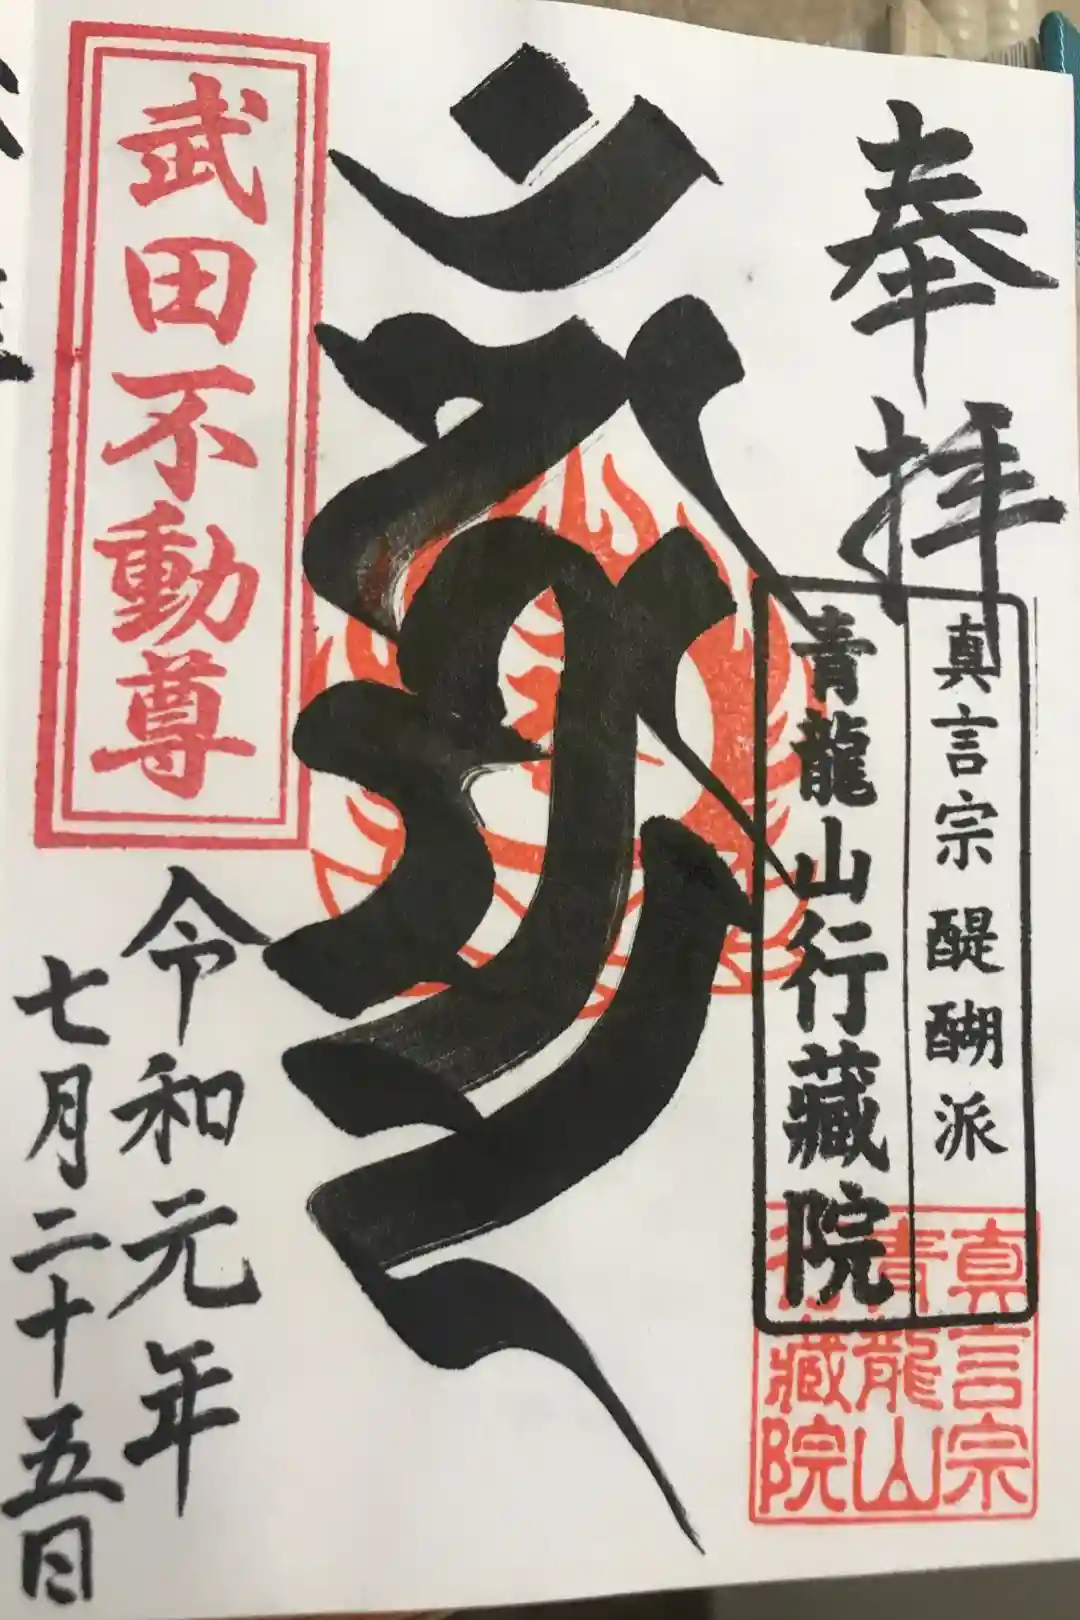 奉拝
真言宗醍醐派
青龍山行藏院
真言宗
青龍山
行藏院
武田不動尊
令和元年
七月二十五日